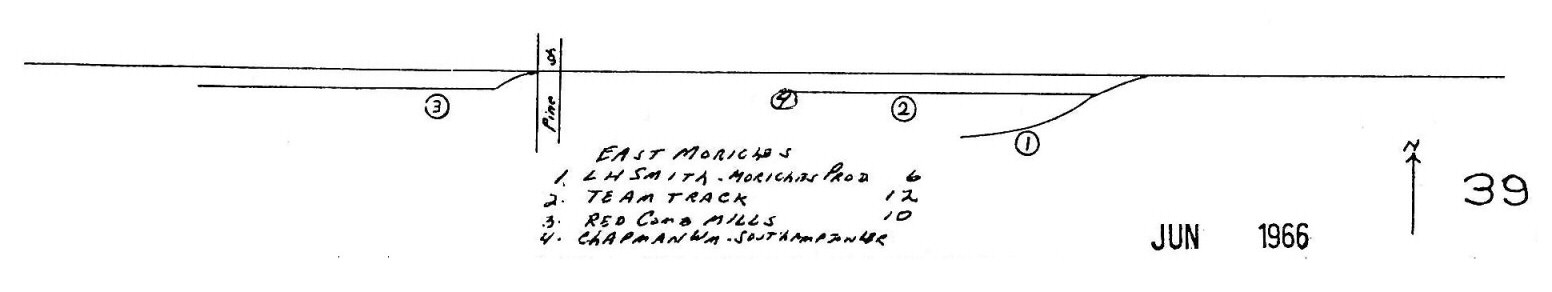 Pine St
3
4
2
1
EAST MORICHES
1. L H SMITH - MORICHES PROD 6
2. TEAM TRACK 12
3. RED COMB MILLS 10
4. CHAPMAN WM - SOUTHAMPTON LBR
N
39
JUN 1966